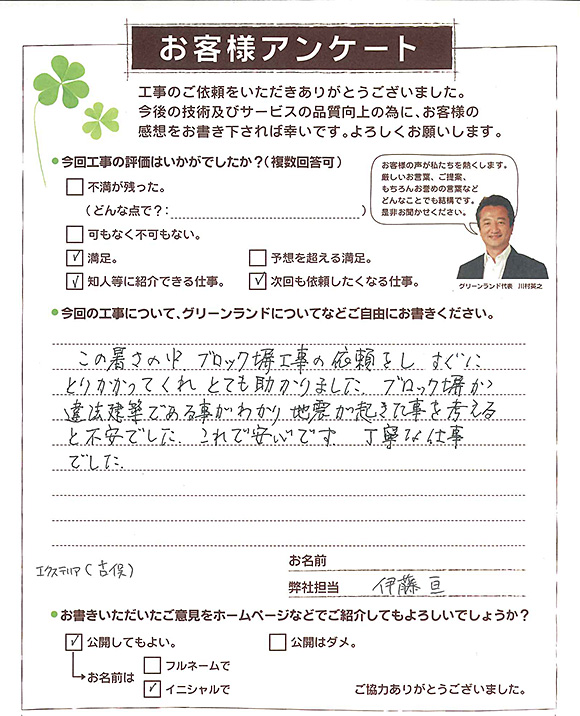 お客様アンケート
工事のご依頼をいただきありがとうございました。
今後の技術及びサービスの品質向上の為に、お客様の
感想をお書き下されば幸いです。よろしくお願いします。
今回工事の評価はいかがでしたか?(複数回答可)
不満が残った。
(どんな点で?: )
可もなく不可もない。
満足。
予想を超える満足。
知人等に紹介できる仕事。
次回も依頼したくなる仕事。
お客様の声が私たちを熱くします。
厳しいお言葉、ご提案、
もちろんお誉めの言葉など
どんなことでも結構です。
是非お聞かせください。
グリーンランド代表 川村英之
今回の工事について、グリーンランドについてなどご自由にお書きください。
この暑さの中 ブロック塀工事の依頼をし すぐに
とりかかってくれ とても助かりました ブロック塀が
違法建築である事がわかり 地震が起きた事を考える
と不安でした これで安心です 丁寧な仕事
でした
エクステリア(吉俣)
お名前
弊社担当 伊藤 亘
お書きいただいたご意見をホームページなどでご紹介してもよろしいでしょうか?
公開してもよい。
公開はダメ。
お名前は
フルネームで
イニシャルで
ご協力ありがとうございました。